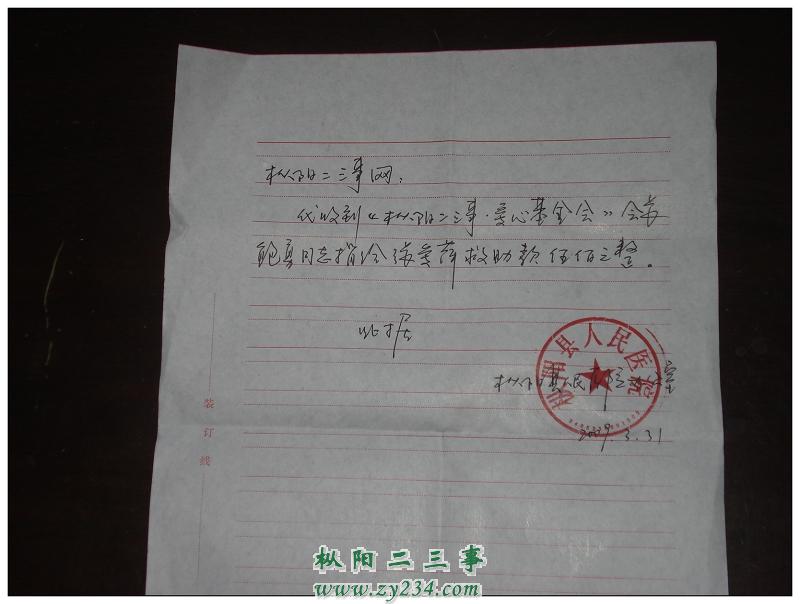 枞阳二三事网：
代收到《枞阳二三事·爱心基金会》会员
鲍勇同志捐给张美萍救助款伍佰元整。
此据
枞阳县人民医院办公室
2009.3.31
枞阳县人民医院
装订线
枞阳二三事
www.zy234.com